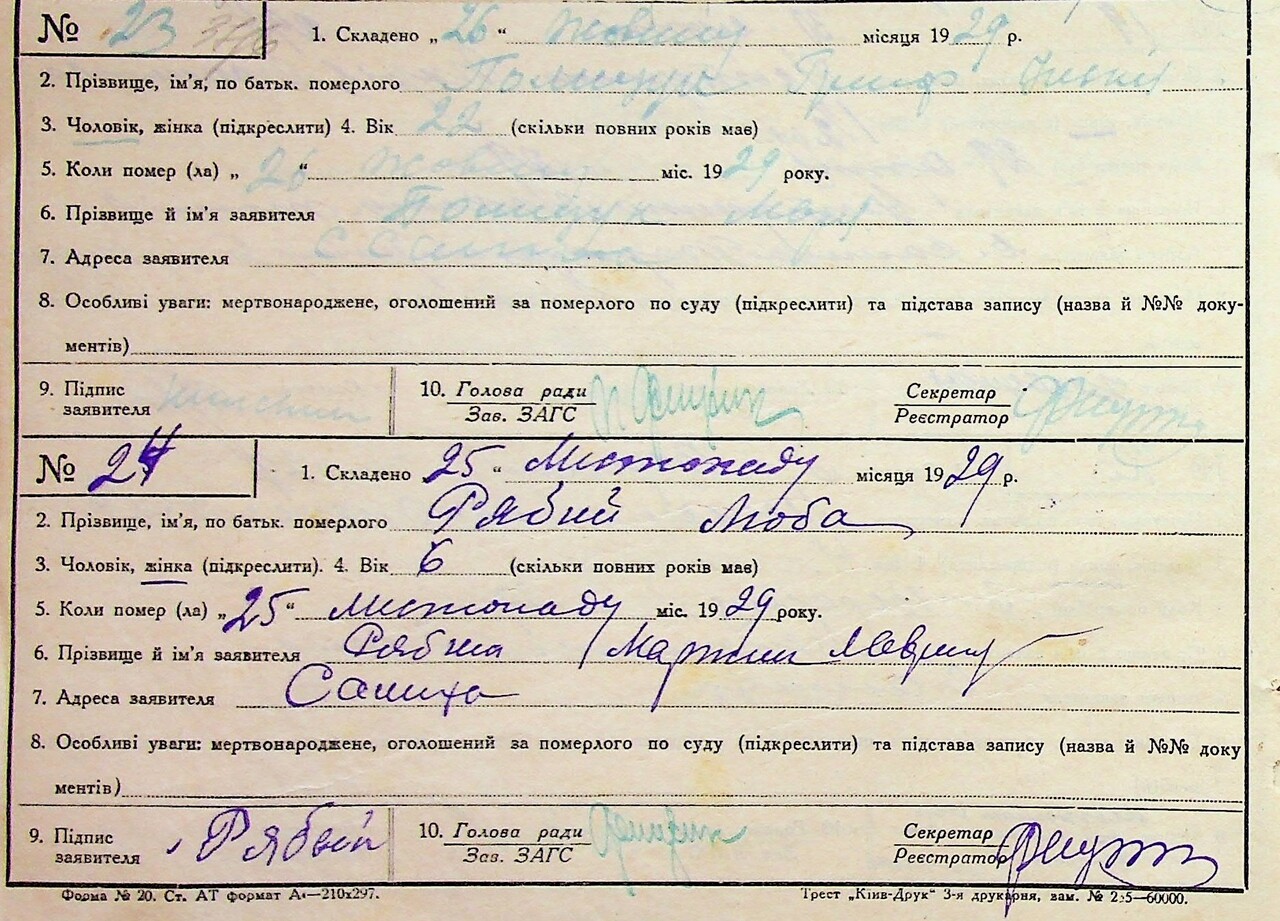 № 23 1. Складено „26“ Жовтня місяця 1929 р.
2. Прізвище, ім'я, по батьк. померлого Полищук
3. Чоловік, жінка (підкреслити) 4. Вік 22 (скільки повних років має)
5. Коли помер (ла) „26“ Жовтня міс. 1929 року.
6. Прізвище й ім'я заявителя Полищук
7. Адреса заявителя
8. Особливі уваги: мертвонароджене, оголошений за померлого по суду (підкреслити) та підстава запису (назва й №№ доку-
ментів)
9. Підпис заявителя 10. Голова ради Зав. ЗАГС Секретар Реєстратор
№ 24 1. Складено 25“ Листопаду місяця 1929 р.
2. Прізвище, ім'я, по батьк. померлого Рябий Люба
3. Чоловік, жінка (підкреслити). 4. Вік 6 (скільки повних років має)
5. Коли помер (ла) „25“ Листопаду міс. 1929 року.
6. Прізвище й ім'я заявителя Мартин
7. Адреса заявителя Салиха
8. Особливі уваги: мертвонароджене, оголошений за померлого по суду (підкреслити) та підстава запису (назва й №№ доку
ментів)
9. Підпис заявителя Рябый 10. Голова ради Зав. ЗАГС Секретар Реєстратор
Форма № 20. Ст. АТ формат А₄—210х297. Трест „Київ-Друк“ 3-я друкарня, зам. № 235—60000.